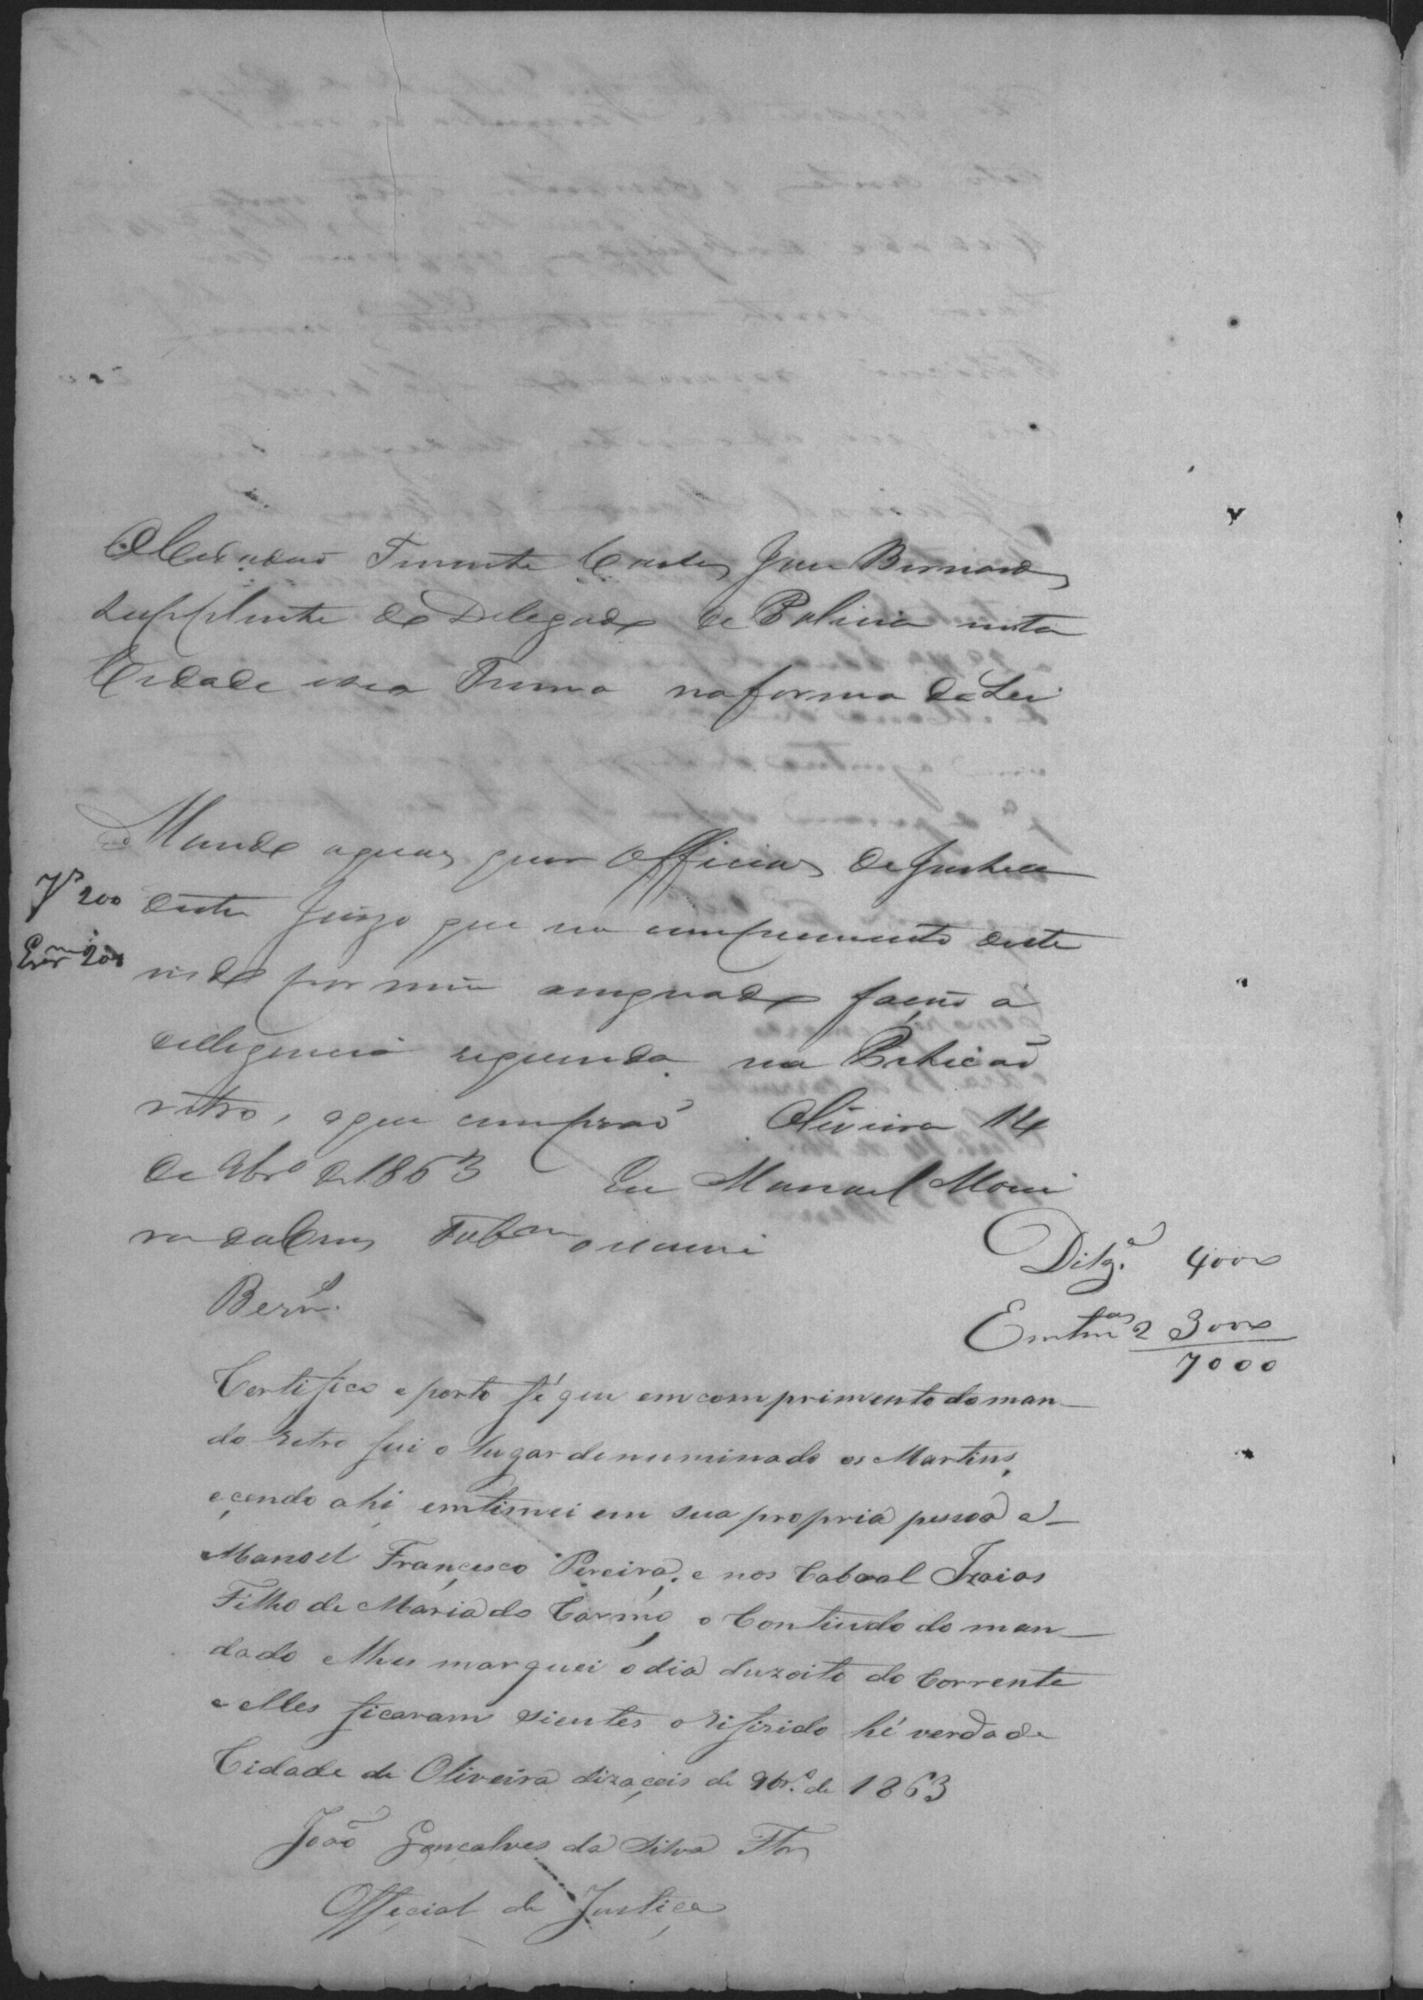 O Cidadão Tenente Carlos José Bernardes
Supplente do Delegado de Policia nesta
Cidade e seu Termo na forma da Lei
Mando a quaes quer Officiaes de Justica
J.º 200
deste Juizo que em comprimento deste
Escr.m 200
indo por mim assignado fação a
delligencia requerida na Peticão
retro, o que cumprão Oliveira 14
de 9br.º de 1863 Eu Manoel Morei
ra da Cruz Tab.am o escrevi
Bern.
Dilg.ª 4000
Emtm.as 2 3000
7000
Certifico e porto fé que em comprimento do man_
do retro fui o lugar denuminado os Martins,
e çendo ahi emtimei em sua propria pessoa a_
Manoel Françisco Pereira, e nos Cabral Izaias
Filho de Maria do Carmo, o Contiudo do man_
dado e lhes marquei o dia duzoito do Corrente
e elles ficaram sientes o rifirido hé verdade
Cidade de Oliveira dizaçeis de 9br.º de 1863
João Gonçalves da Silva Flor
Offeçial de Justiça